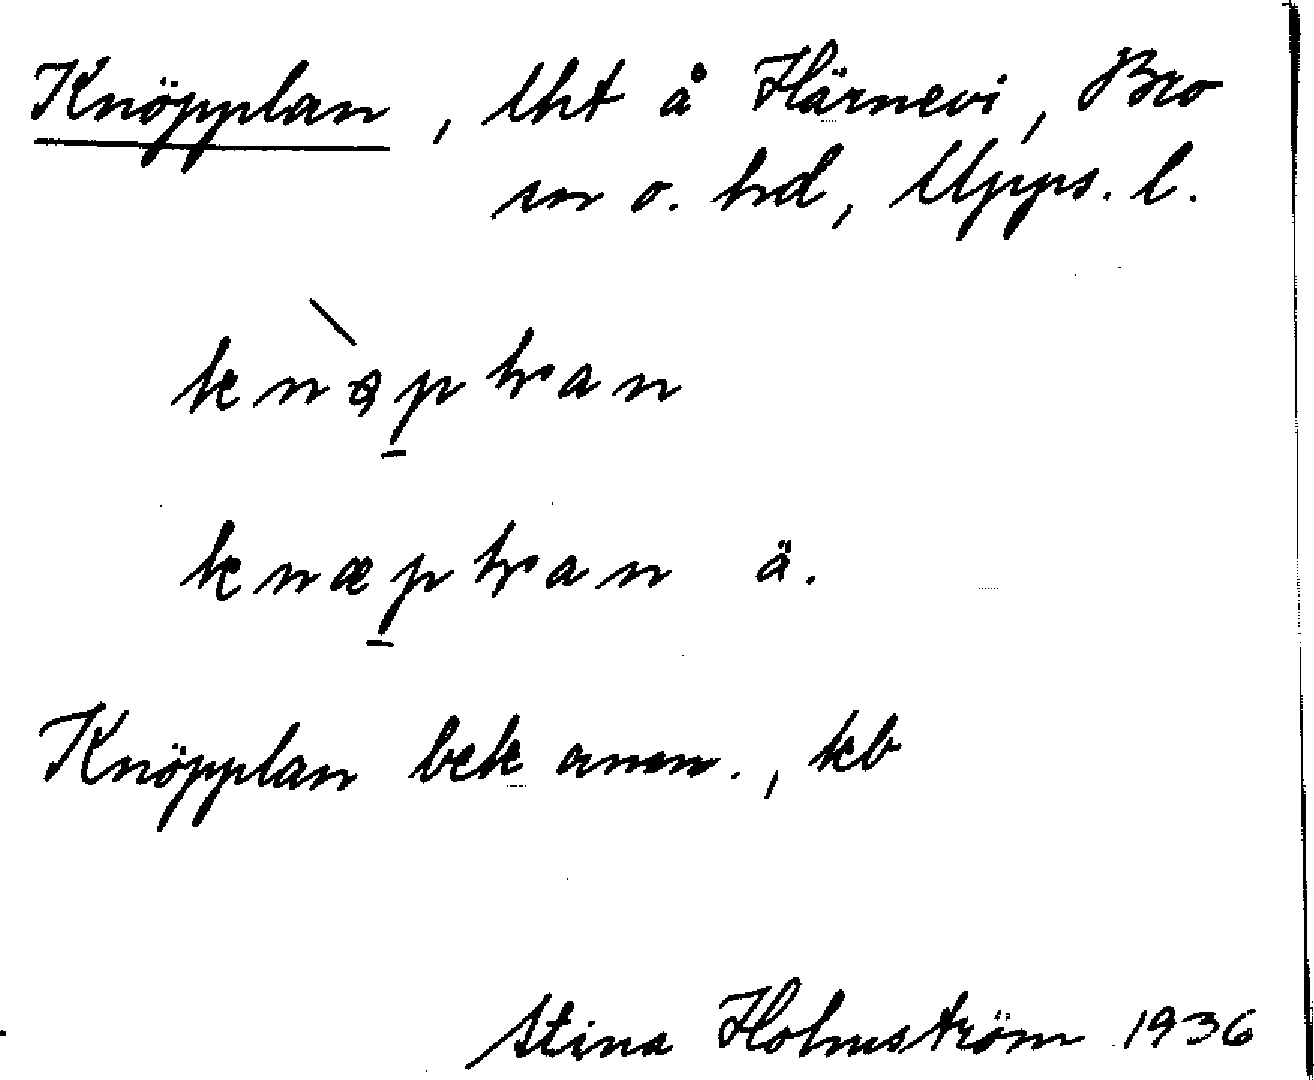 Knöpplan, lht å Härnevi, Bro
sn o. hd, Upps. l.
Knöpplan bek anm., kb
Stina Holmström 1936